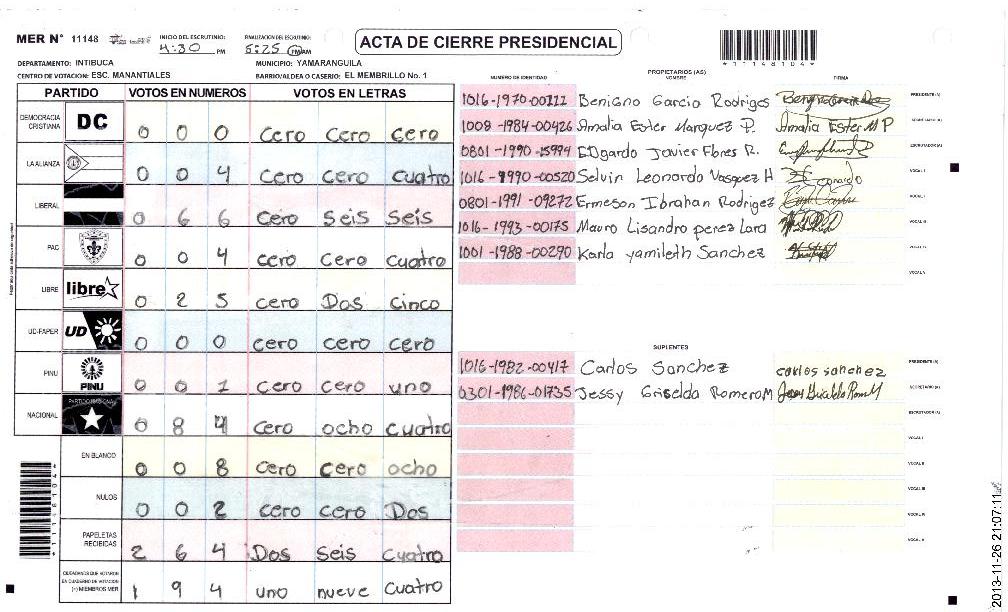 MER N° 11148
INICIO DEL ESCRUTINIO: 4:30 PM
FINALIZACION DEL ESCRUTINIO: 5:25 PM AM
ACTA DE CIERRE PRESIDENCIAL
*11148104*
DEPARTAMENTO: INTIBUCA
MUNICIPIO: YAMARANGUILA
CENTRO DE VOTACION: ESC. MANANTIALES
BARRIO/ALDEA O CASERIO: EL MEMBRILLO No. 1
PARTIDO VOTOS EN NUMEROS VOTOS EN LETRAS
DEMOCRACIA CRISTIANA DC 0 0 0 cero cero cero
LA ALIANZA 0 0 4 cero cero cuatro
LIBERAL 0 6 6 cero seis seis
PAC 0 0 4 cero cero cuatro
LIBRE libre 0 2 5 cero Dos cinco
UD-FAPER UD 0 0 0 cero cero cero
PINU PINU 0 0 1 cero cero uno
NACIONAL PARTIDO NACIONAL 0 8 4 cero ocho cuatro
EN BLANCO 0 0 8 cero cero ocho
NULOS 0 0 2 cero cero Dos
PAPELETAS RECIBIDAS 2 6 4 Dos seis cuatro
CIUDADANOS QUE VOTARON EN CUADERNO DE VOTACION (+) MIEMBROS MER 1 9 4 uno nueve cuatro
PROPIETARIOS (AS)
NUMERO DE IDENTIDAD NOMBRE FIRMA
1016-1970-00111 Benigno Garcia Rodriges PRESIDENTE (A)
1008-1984-00426 Amalia Ester Marquez P. Amalia Ester M P SECRETARIO (A)
0801-1990-15994 EDgardo Javier Flores R. ESCRUTADOR (A)
1016-1990-00520 Selvin Leonardo Vasquez H VOCAL I
0801-1991-09272 Ermeson Ibrahan Rodrigez VOCAL II
1016-1993-00175 Mauro Lisandro perez Lara VOCAL III
1001-1988-00290 Karla yamileth Sanchez VOCAL IV
VOCAL V
SUPLENTES
1016-1982-00417 Carlos Sanchez carlos sanchez PRESIDENTE (A)
0301-1986-01735 Jessy Griselda Romero M SECRETARIO (A)
ESCRUTADOR (A)
VOCAL I
VOCAL II
VOCAL III
VOCAL IV
VOCAL V
2013-11-26 21:07:11